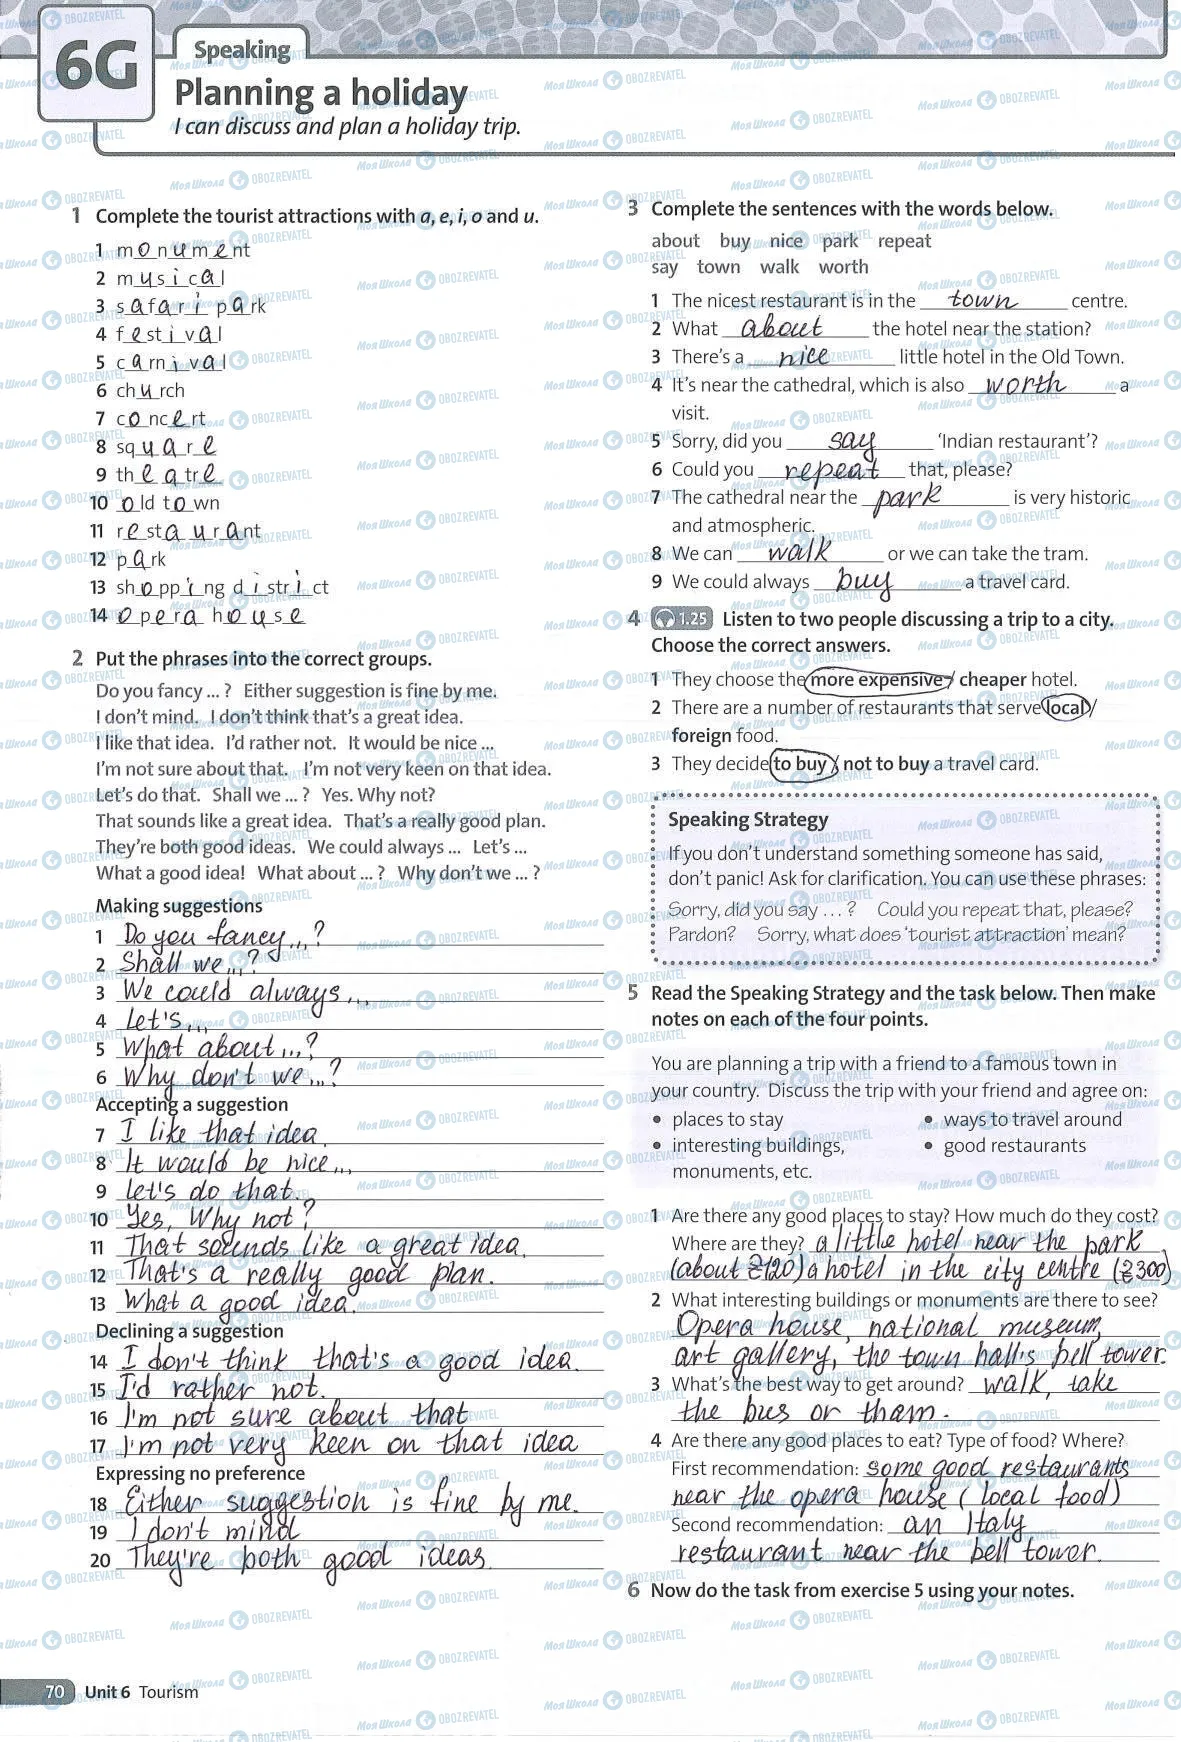 6G
Speaking
Planning a holiday
I can discuss and plan a holiday trip.
1 Complete the tourist attractions with a, e, i, o and u.
1 monument
2 musical
3 safari park
4 festival
5 carnival
6 church
7 concert
8 square
9 theatre
10 old town
11 restaurant
12 park
13 shopping district
14 opera house
2 Put the phrases into the correct groups.
Do you fancy ... ? Either suggestion is fine by me.
I don't mind. I don't think that's a great idea.
I like that idea. I'd rather not. It would be nice ...
I'm not sure about that. I'm not very keen on that idea.
Let's do that. Shall we ... ? Yes. Why not?
That sounds like a great idea. That's a really good plan.
They're both good ideas. We could always ... Let's ...
What a good idea! What about ... ? Why don't we ... ?
Making suggestions
1 Do you fancy...?
2 Shall we...?
3 We could always...
4 Let's...
5 What about...?
6 Why don't we...?
Accepting a suggestion
7 I like that idea.
8 It would be nice...
9 Let's do that.
10 Yes, Why not?
11 That sounds like a great idea.
12 That's a really good plan.
13 What a good idea.
Declining a suggestion
14 I don't think that's a good idea.
15 I'd rather not.
16 I'm not sure about that
17 I'm not very keen on that idea
Expressing no preference
18 Either suggestion is fine by me.
19 I don't mind
20 They're both good ideas.
3 Complete the sentences with the words below.
about buy nice park repeat
say town walk worth
1 The nicest restaurant is in the town centre.
2 What about the hotel near the station?
3 There's a nice little hotel in the Old Town.
4 It's near the cathedral, which is also worth a
visit.
5 Sorry, did you say 'Indian restaurant'?
6 Could you repeat that, please?
7 The cathedral near the park is very historic
and atmospheric.
8 We can walk or we can take the tram.
9 We could always buy a travel card.
4 1.25 Listen to two people discussing a trip to a city.
Choose the correct answers.
1 They choose the more expensive / cheaper hotel.
2 There are a number of restaurants that serve local /
foreign food.
3 They decide to buy / not to buy a travel card.
Speaking Strategy
If you don't understand something someone has said,
don't panic! Ask for clarification. You can use these phrases:
Sorry, did you say ... ? Could you repeat that, please?
Pardon? Sorry, what does 'tourist attraction' mean?
5 Read the Speaking Strategy and the task below. Then make
notes on each of the four points.
You are planning a trip with a friend to a famous town in
your country. Discuss the trip with your friend and agree on:
• places to stay
• ways to travel around
• interesting buildings,
monuments, etc.
• good restaurants
1 Are there any good places to stay? How much do they cost?
Where are they? a little hotel near the park
(about ₴120) a hotel in the city centre (₴300)
2 What interesting buildings or monuments are there to see?
Opera house, national museum,
art gallery, the town hall's bell tower.
3 What's the best way to get around? walk, take
the bus or tham.
4 Are there any good places to eat? Type of food? Where?
First recommendation: some good restaurants
near the opera house (local food)
Second recommendation: an Italy
restaurant near the bell tower.
6 Now do the task from exercise 5 using your notes.
70 Unit 6 Tourism
Моя Школа OBOZREVATEL